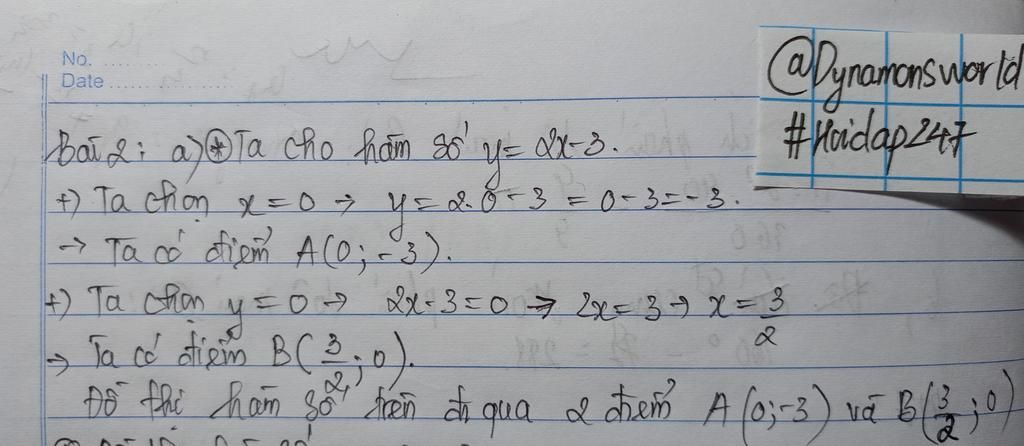 No. ..........
Date ..................
@Dynamonsworld
#Hoidap247
Bài 2: a) * Ta cho hàm số y = 2x-3.
+) Ta chọn x = 0 → y = 2.0 - 3 = 0 - 3 = -3.
→ Ta có điểm A(0; -3).
+) Ta chọn y = 0 → 2x - 3 = 0 → 2x = 3 → x = 3/2
→ Ta có điểm B(3/2; 0).
Đồ thị hàm số trên đi qua 2 điểm A(0; -3) và B(3/2; 0)